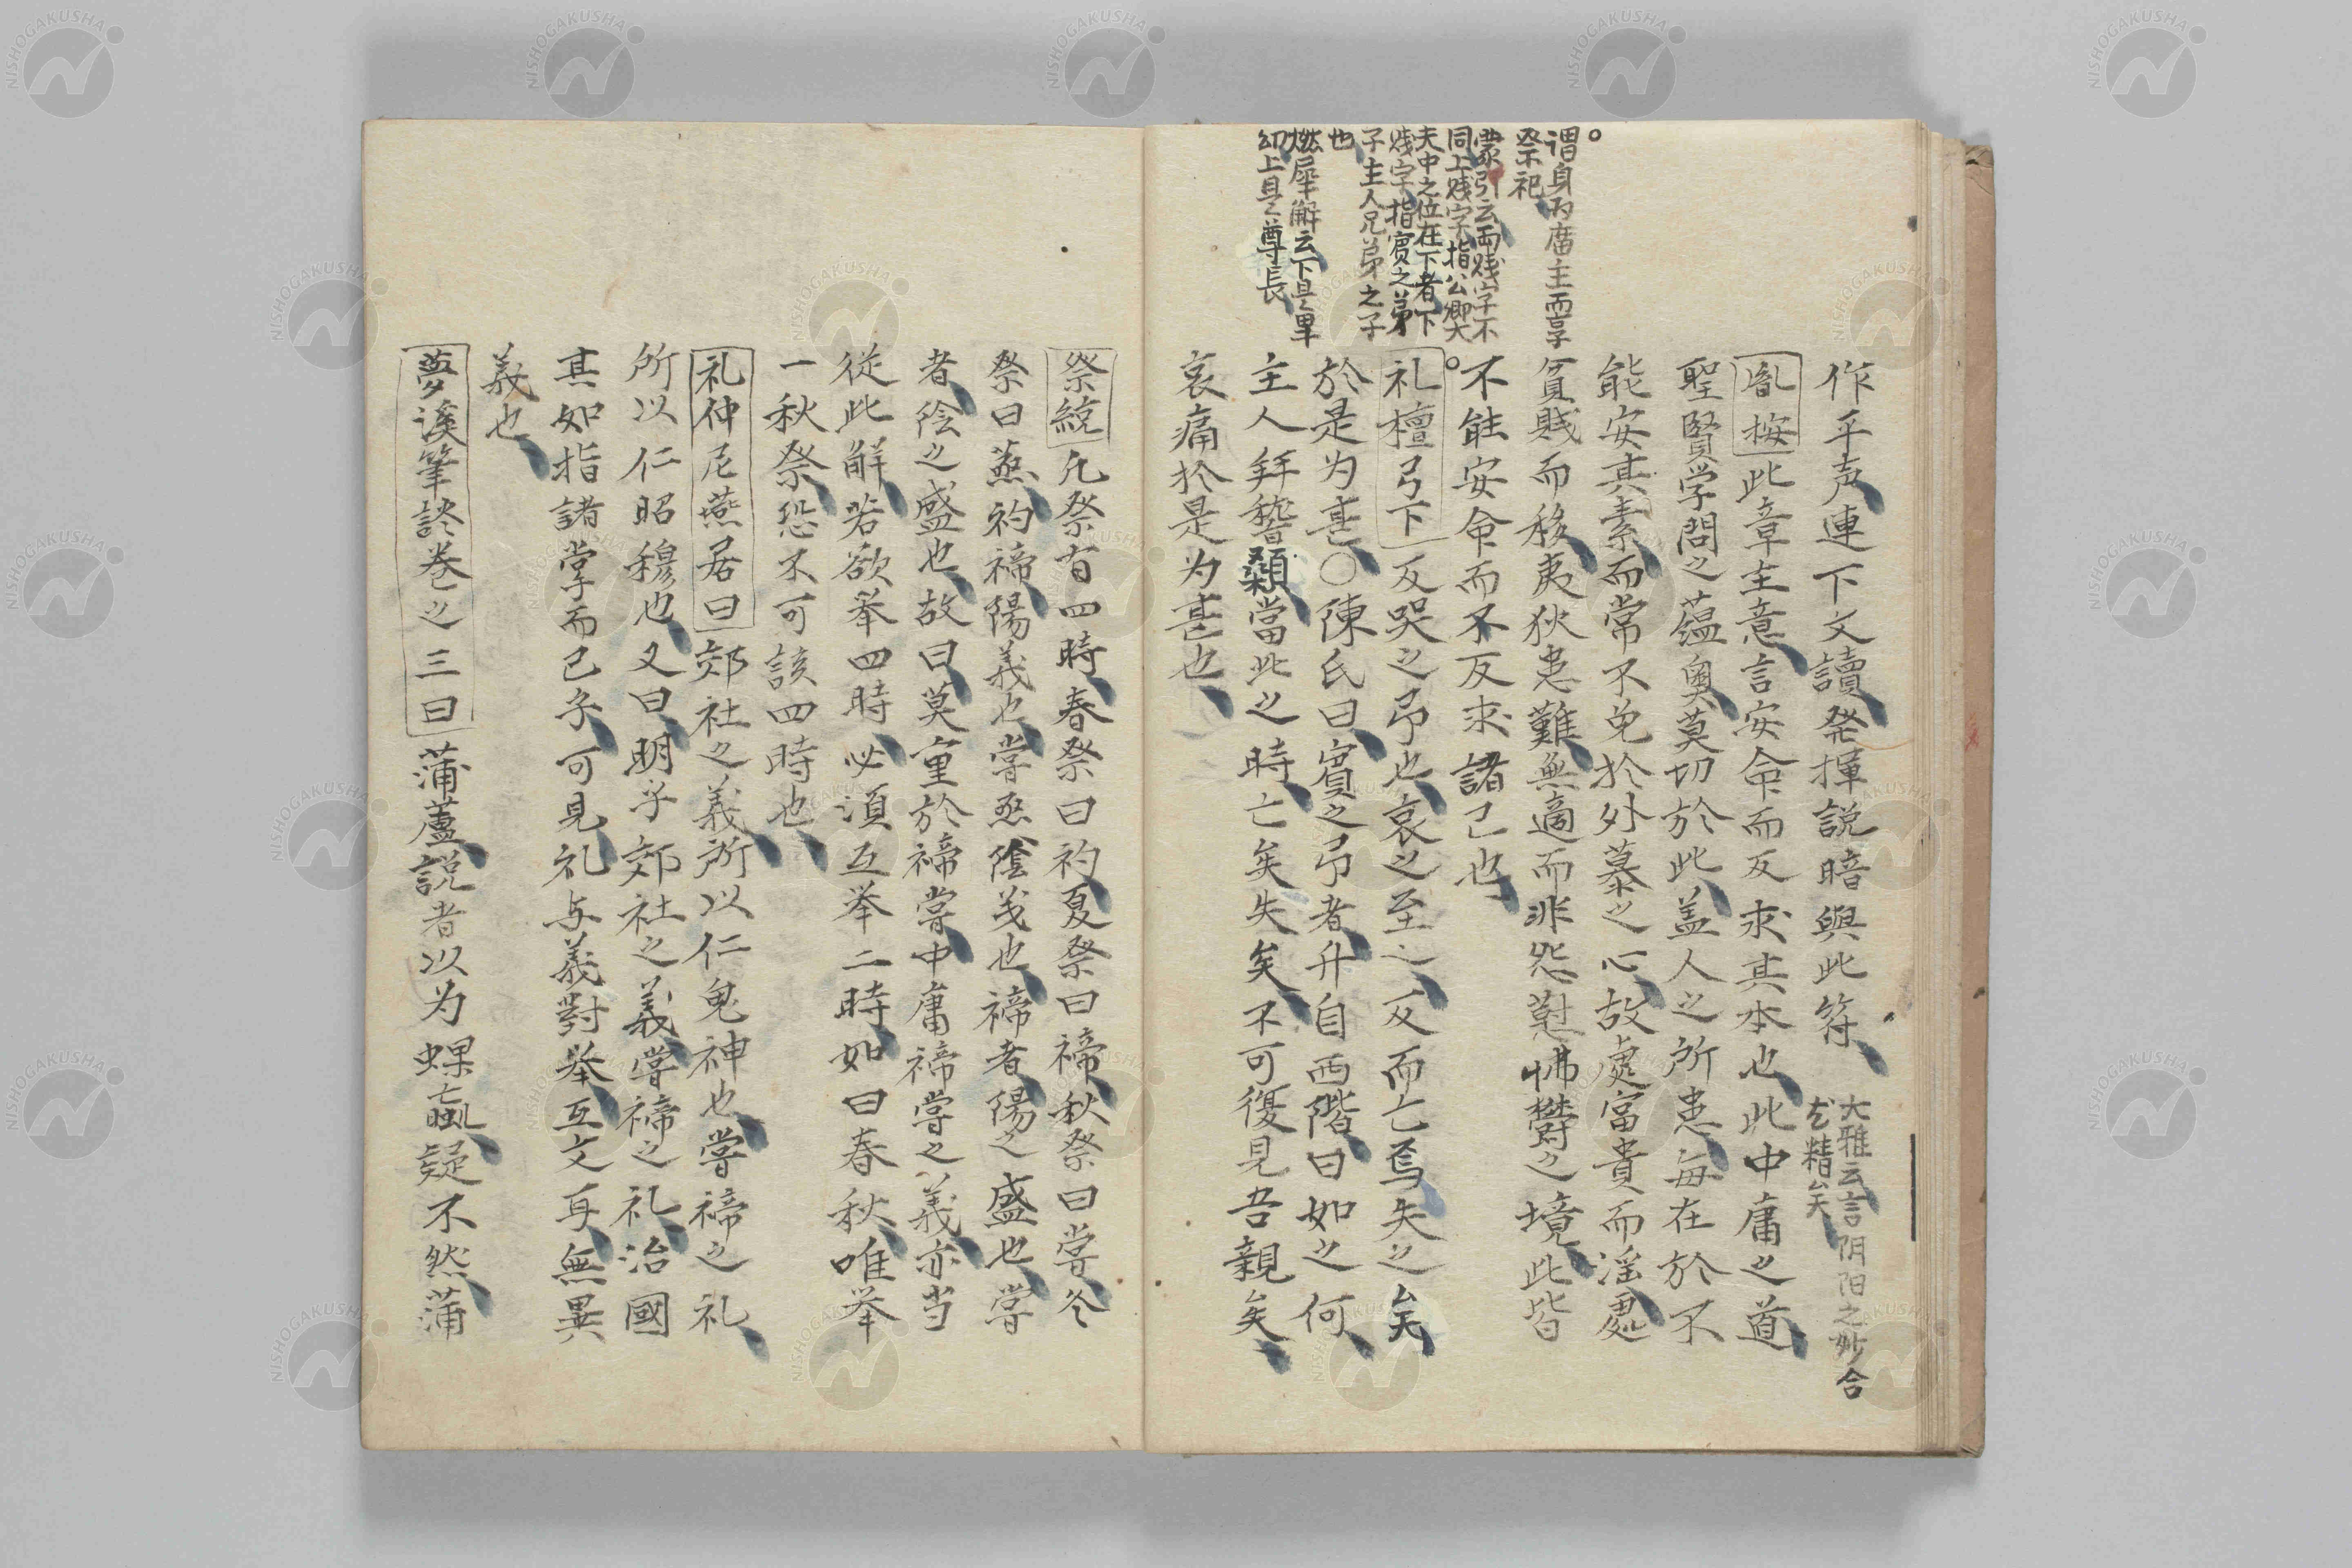 謂身為廣主而享
祭祀
蒙引云両賤字不
同上賤字指公卿大
夫中之位在下者下
賤字指賓之弟
子主人兄弟之子
也
燃犀解云下是卑
幼上是尊長
作平声連下文讀発揮説暗與此符
大雅云言阴阳之妙合
尤精矣
胤按此章主意言安命而反求其本也此中庸之道
聖賢学問之蕴奥莫切於此盖人之所患每在於不
能安其素而常不免於外慕之心故處富貴而淫處
貧賎而移夷狄患難無適而非怨懟怫欝之境此皆
不能安命而不反求諸己也
礼檀弓下反哭之弔也哀之至也反而亡焉失之矣
於是为甚〇陳氏曰賓之弔者升自西階曰如之何
主人拜稽顙當此之時亡矣失矣不可復見吾親矣
哀痛於是为甚也
祭統凡祭有四時春祭曰礿夏祭曰禘秋祭曰嘗冬
祭曰烝礿禘陽義也嘗烝陰義也禘者陽之盛也嘗
者陰之盛也故曰莫重於禘嘗中庸禘嘗之義亦当
從此解若欲举四時必須互举二時如曰春秋唯举
一秋祭恐不可該四時也
礼仲尼燕居曰郊社之義所以仁鬼神也嘗禘之礼
所以仁昭穆也又曰明乎郊社之義嘗禘之礼治國
其如指諸掌而已乎可見礼与義對举互文耳無異
義也
夢溪筆談卷之三曰蒲蘆説者以为蜾蠃疑不然蒲